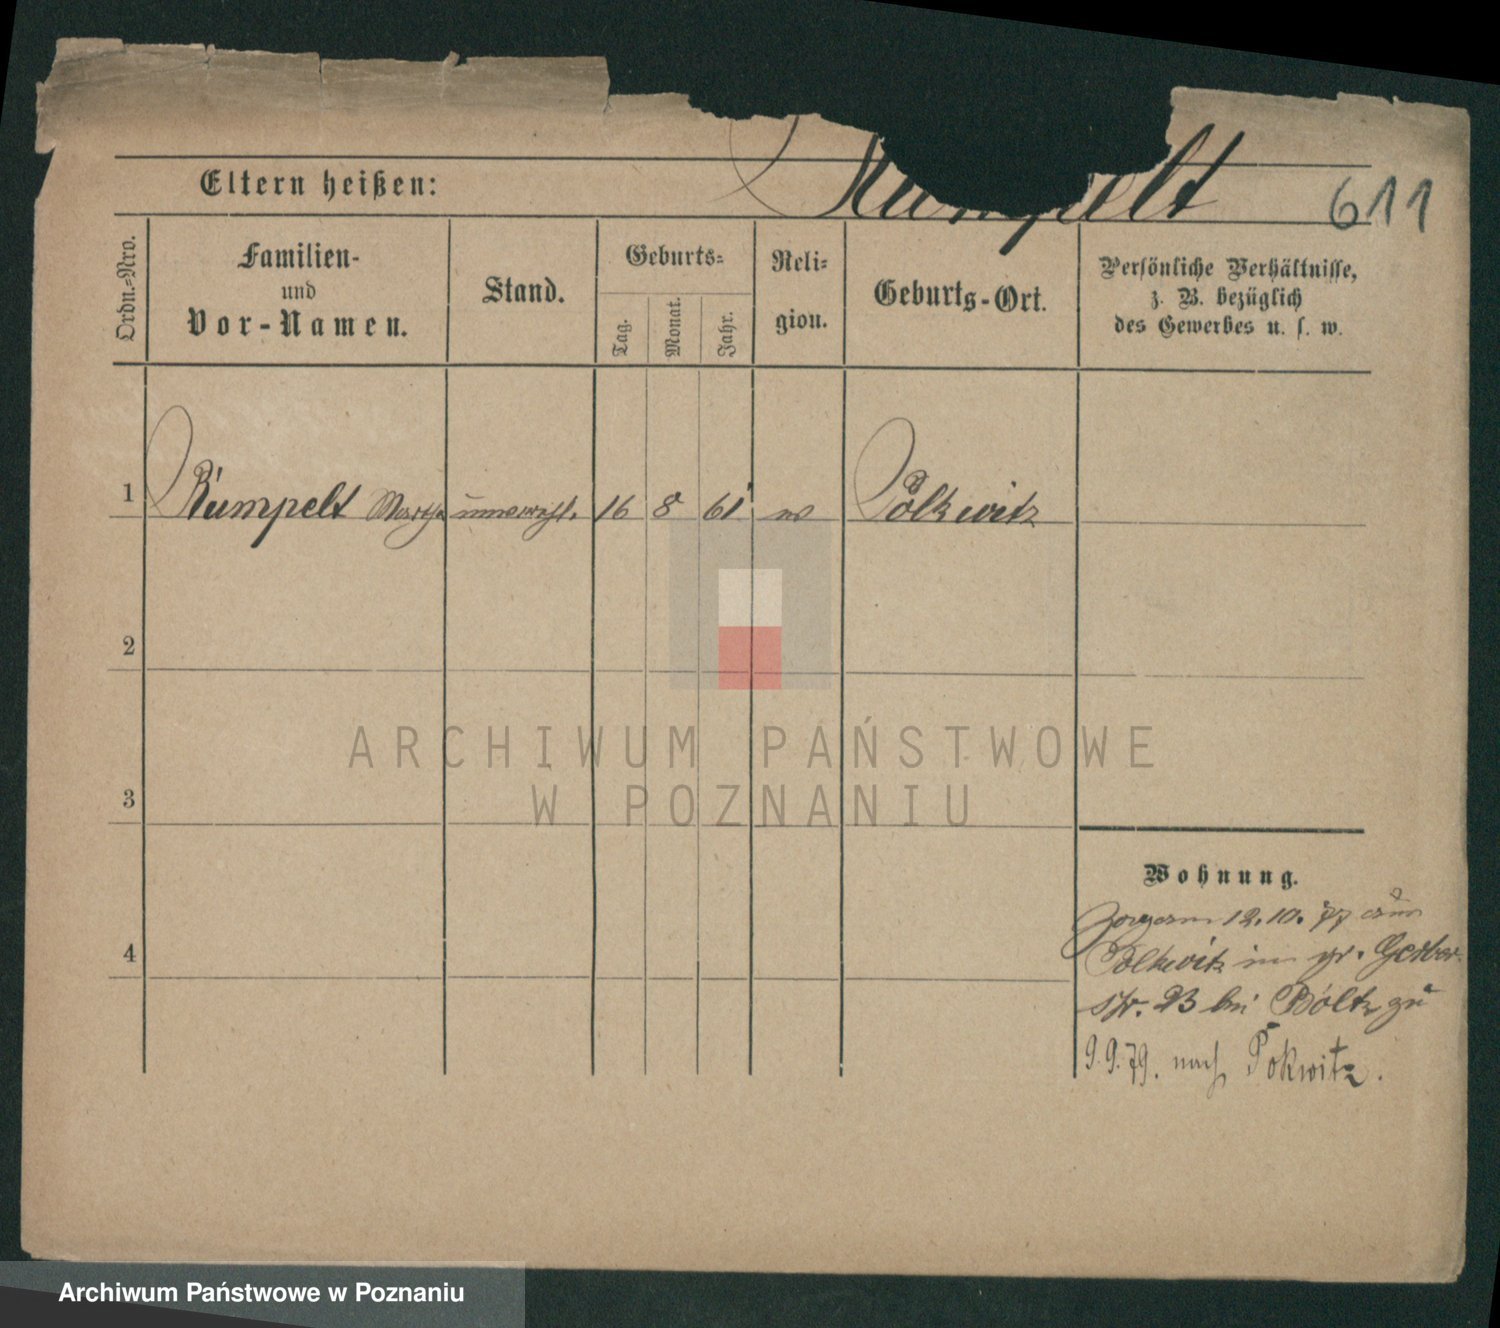 Rumpelt
611
Eltern heißen:
Ordn.-Nro.
Familien-
und
Vor-Namen.
Stand.
Geburts-
Tag.
Monat.
Jahr.
Reli-
gion.
Geburts-Ort.
Persönliche Verhältnisse,
z. B. bezüglich
des Gewerbes u. s. w.
1 Rumpelt Martha unverehl. 16 8 61 Polkwitz
2
3
4
Wohnung.
12.10.77 aus
Polkwitz in gr. Gerber
str. 23 bei zu
9.9.79. nach Polkwitz.
ARCHIWUM PAŃSTWOWE
W POZNANIU
Archiwum Państwowe w Poznaniu